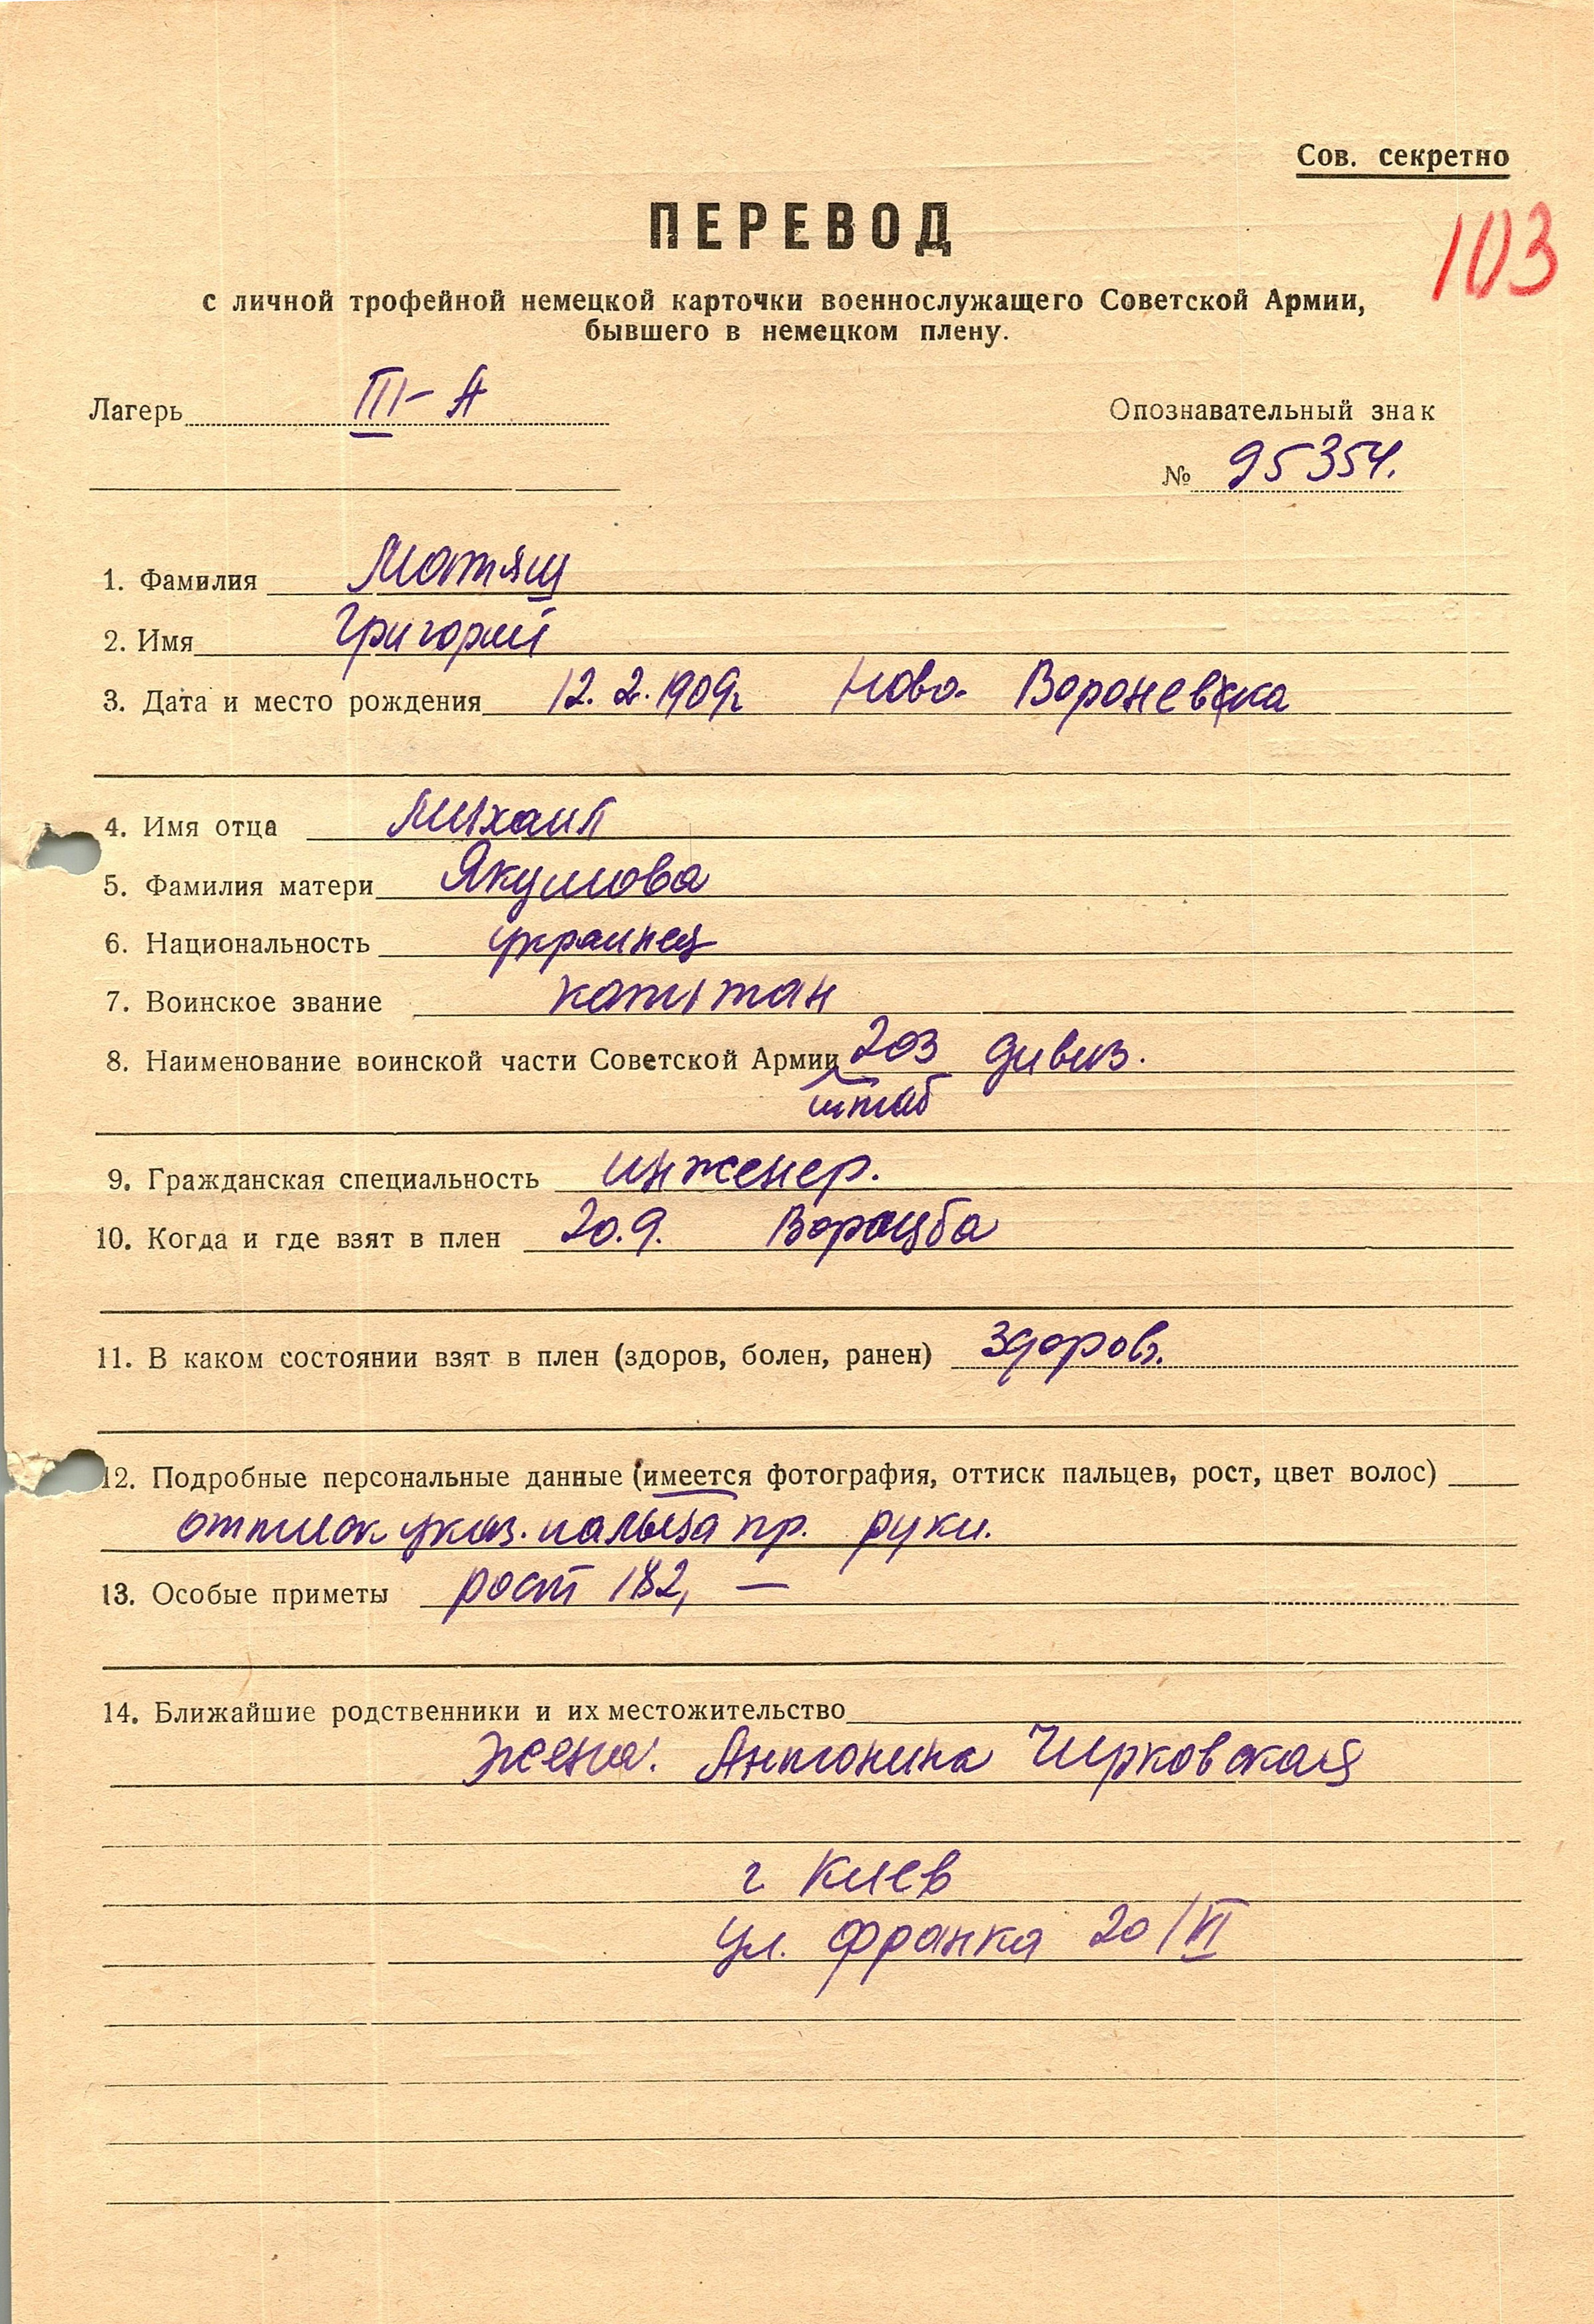 Сов. секретно
ПЕРЕВОД
103
с личной трофейной немецкой карточки военнослужащего Советской Армии,
бывшего в немецком плену.
Лагерь III-А
Опознавательный знак
№ 95354.
1. Фамилия Матяш
2. Имя Григорий
3. Дата и место рождения 12.2.1909г Ново-Вороневка
4. Имя отца Михаил
5. Фамилия матери Якумова
6. Национальность украинец
7. Воинское звание капитан
8. Наименование воинской части Советской Армии 203 дивиз.
штаб
9. Гражданская специальность инженер.
10. Когда и где взят в плен 20.9. Ворочба
11. В каком состоянии взят в плен (здоров, болен, ранен) здоров.
12. Подробные персональные данные (имеется фотография, оттиск пальцев, рост, цвет волос)
оттиск указ. пальца пр. руки.
13. Особые приметы рост 182, —
14. Ближайшие родственники и их местожительство
жена: Антонина Чирковская
г Киев
ул. Франка 20/VI